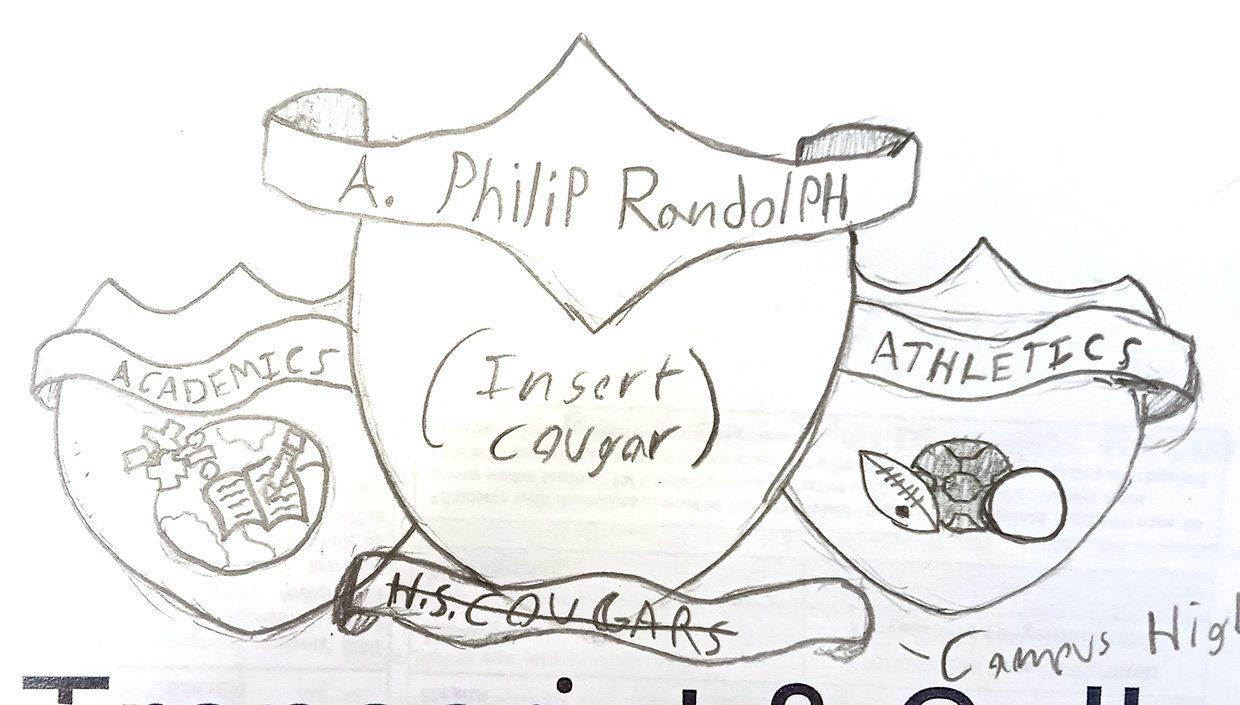 A. PHiliP RandolPH
ACADEMICS
ATHLETICS
(Insert
cougar)
H.S. COUGARS
- Campus High